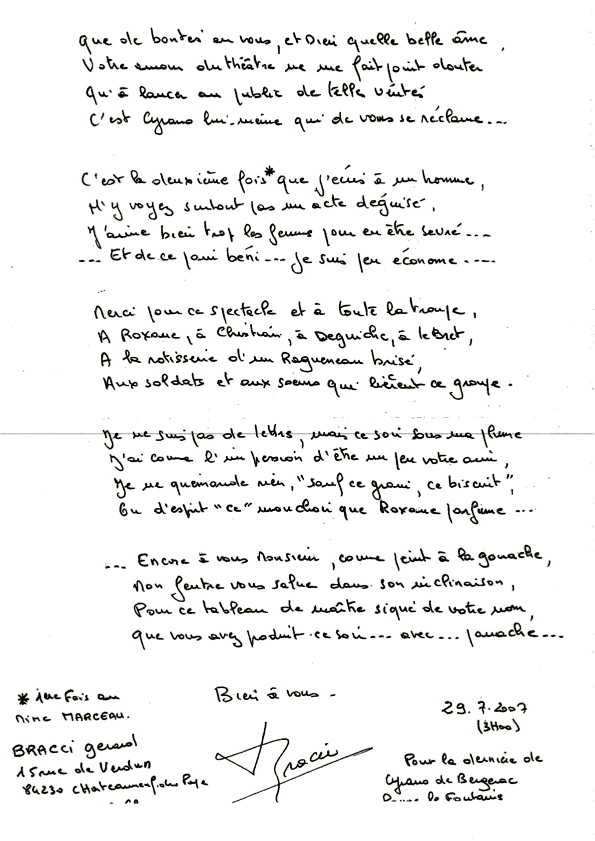 Que de bontés en vous, et Dieu quelle belle âme,
Votre amour du théâtre ne me fait point douter
Qu'à lancer au public de telles vérités
C'est Cyrano lui-même qui de vous se réclame...
C'est la deuxième fois* que j'écris à un homme,
N'y voyez surtout pas un acte déguisé,
J'aime bien trop les femmes pour en être sevré...
... Et de ce pain béni... je suis peu économe....
Merci pour ce spectacle et à toute la troupe,
A Roxane, à Christian, à Deguiche, à le Bret,
A la rotisserie d'un Ragueneau brisé,
Aux soldats et aux soeurs qui licient ce groupe.
Je ne suis pas de lettres, mais ce soir sous ma plume
J'ai comme l'impression d'être un peu votre ami,
Je ne quemande rien, "sauf ce grain, ce biscuit",
Ou d'esprit "ce" mouchoir que Roxane parfume...
... Encore à vous Monsieur, comme peint à la gouache,
Mon feutre vous salue dans son inclinaison,
Pour ce tableau de maître signé de votre nom,
Que vous avez produit ce soir... avec... panache...
Bien à vous -
* 1ere Fois au
Mime MARCEAU.
BRACCI gerard
15 rue de Verdun
84230 CHateauneuf. du Pape
Bracci
29.7.2007
(3H00)
Pour la dernière de
Cyrano de Bergerac